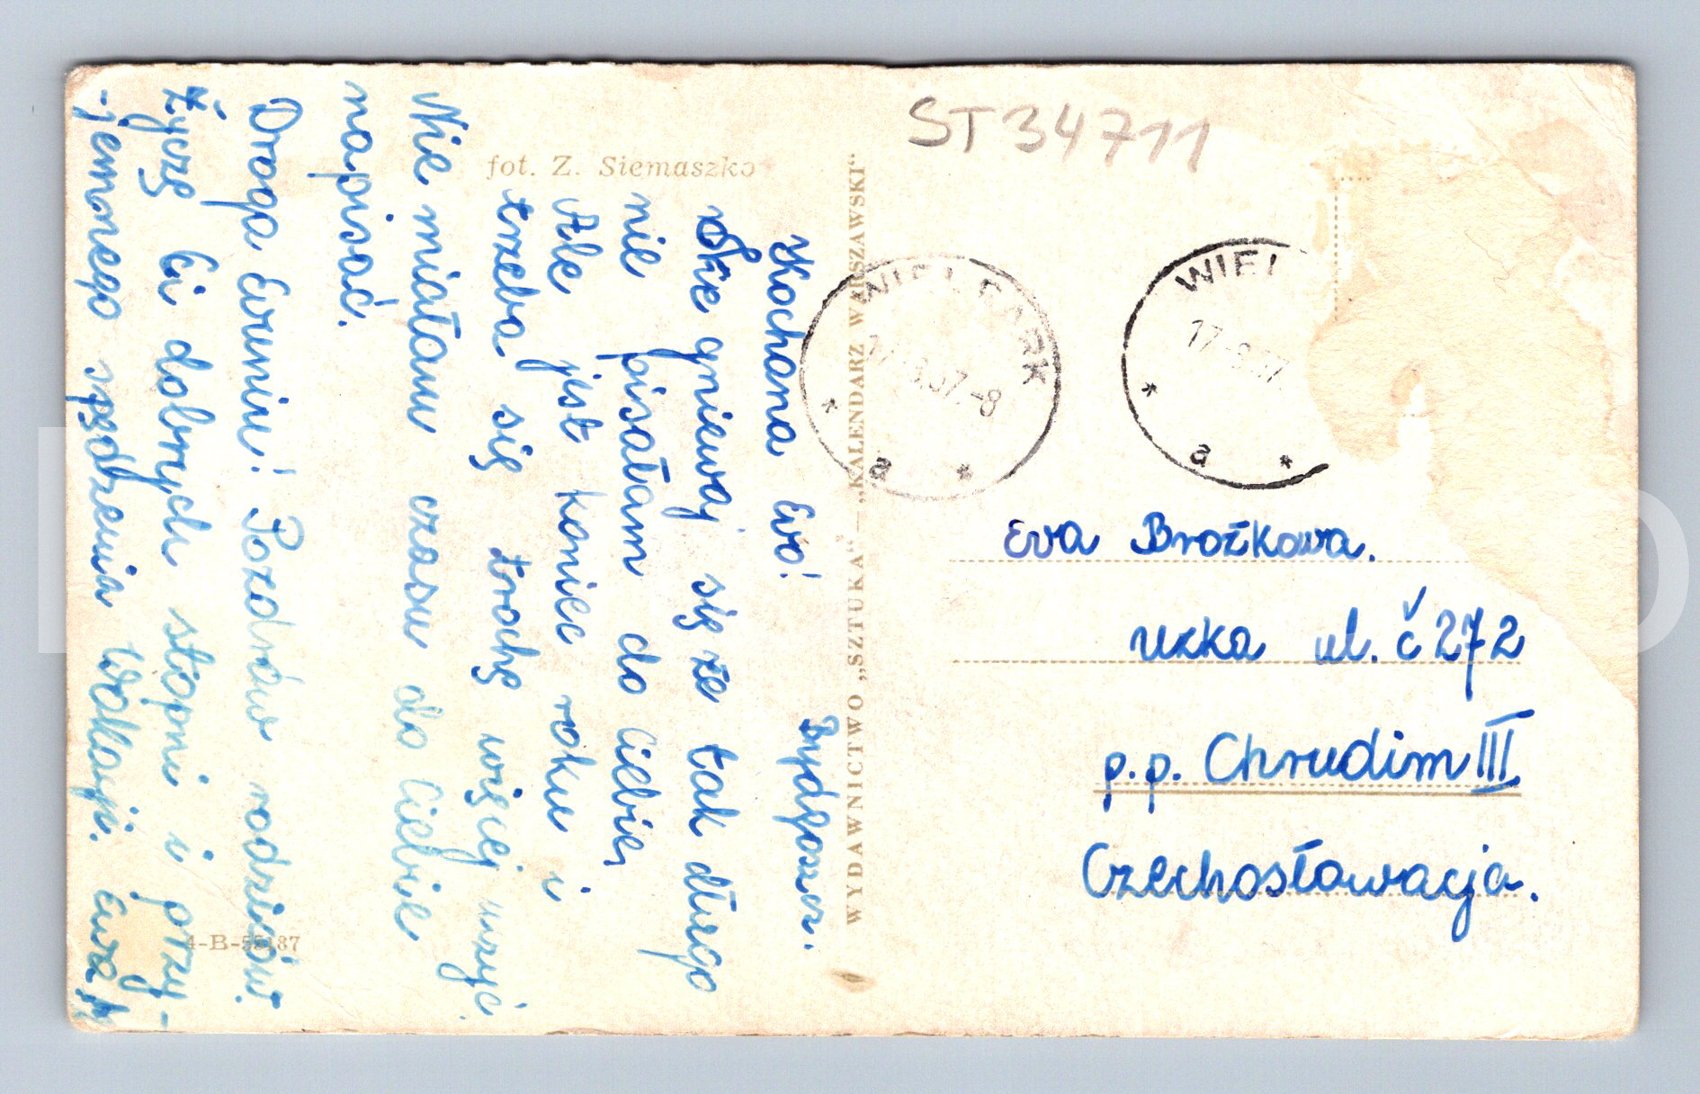 ST34711
fot. Z. Siemaszko
Bydgoszcz.
Kochana Ewo!
Nie gniewaj się że tak długo
nie pisałam do Ciebie,
Ale jest koniec roku i
trzeba się trochę więcej uczyć
Nie miałam czasu do Ciebie
napisać.
Droga Ewuniu! Pozdrów rodziców.
Życzę Ci dobrych stopni i przy-
-jemnego spędzenia wakacji. Ewa
4-B-55187
WYDAWNICTWO „SZTUKA" — „KALENDARZ WARSZAWSKI"
WIEL PARK
a
WIEL
a
Eva Brožkowa.
Uzka ul. č 272
p.p. Chrudim III
Czechosłowacja.